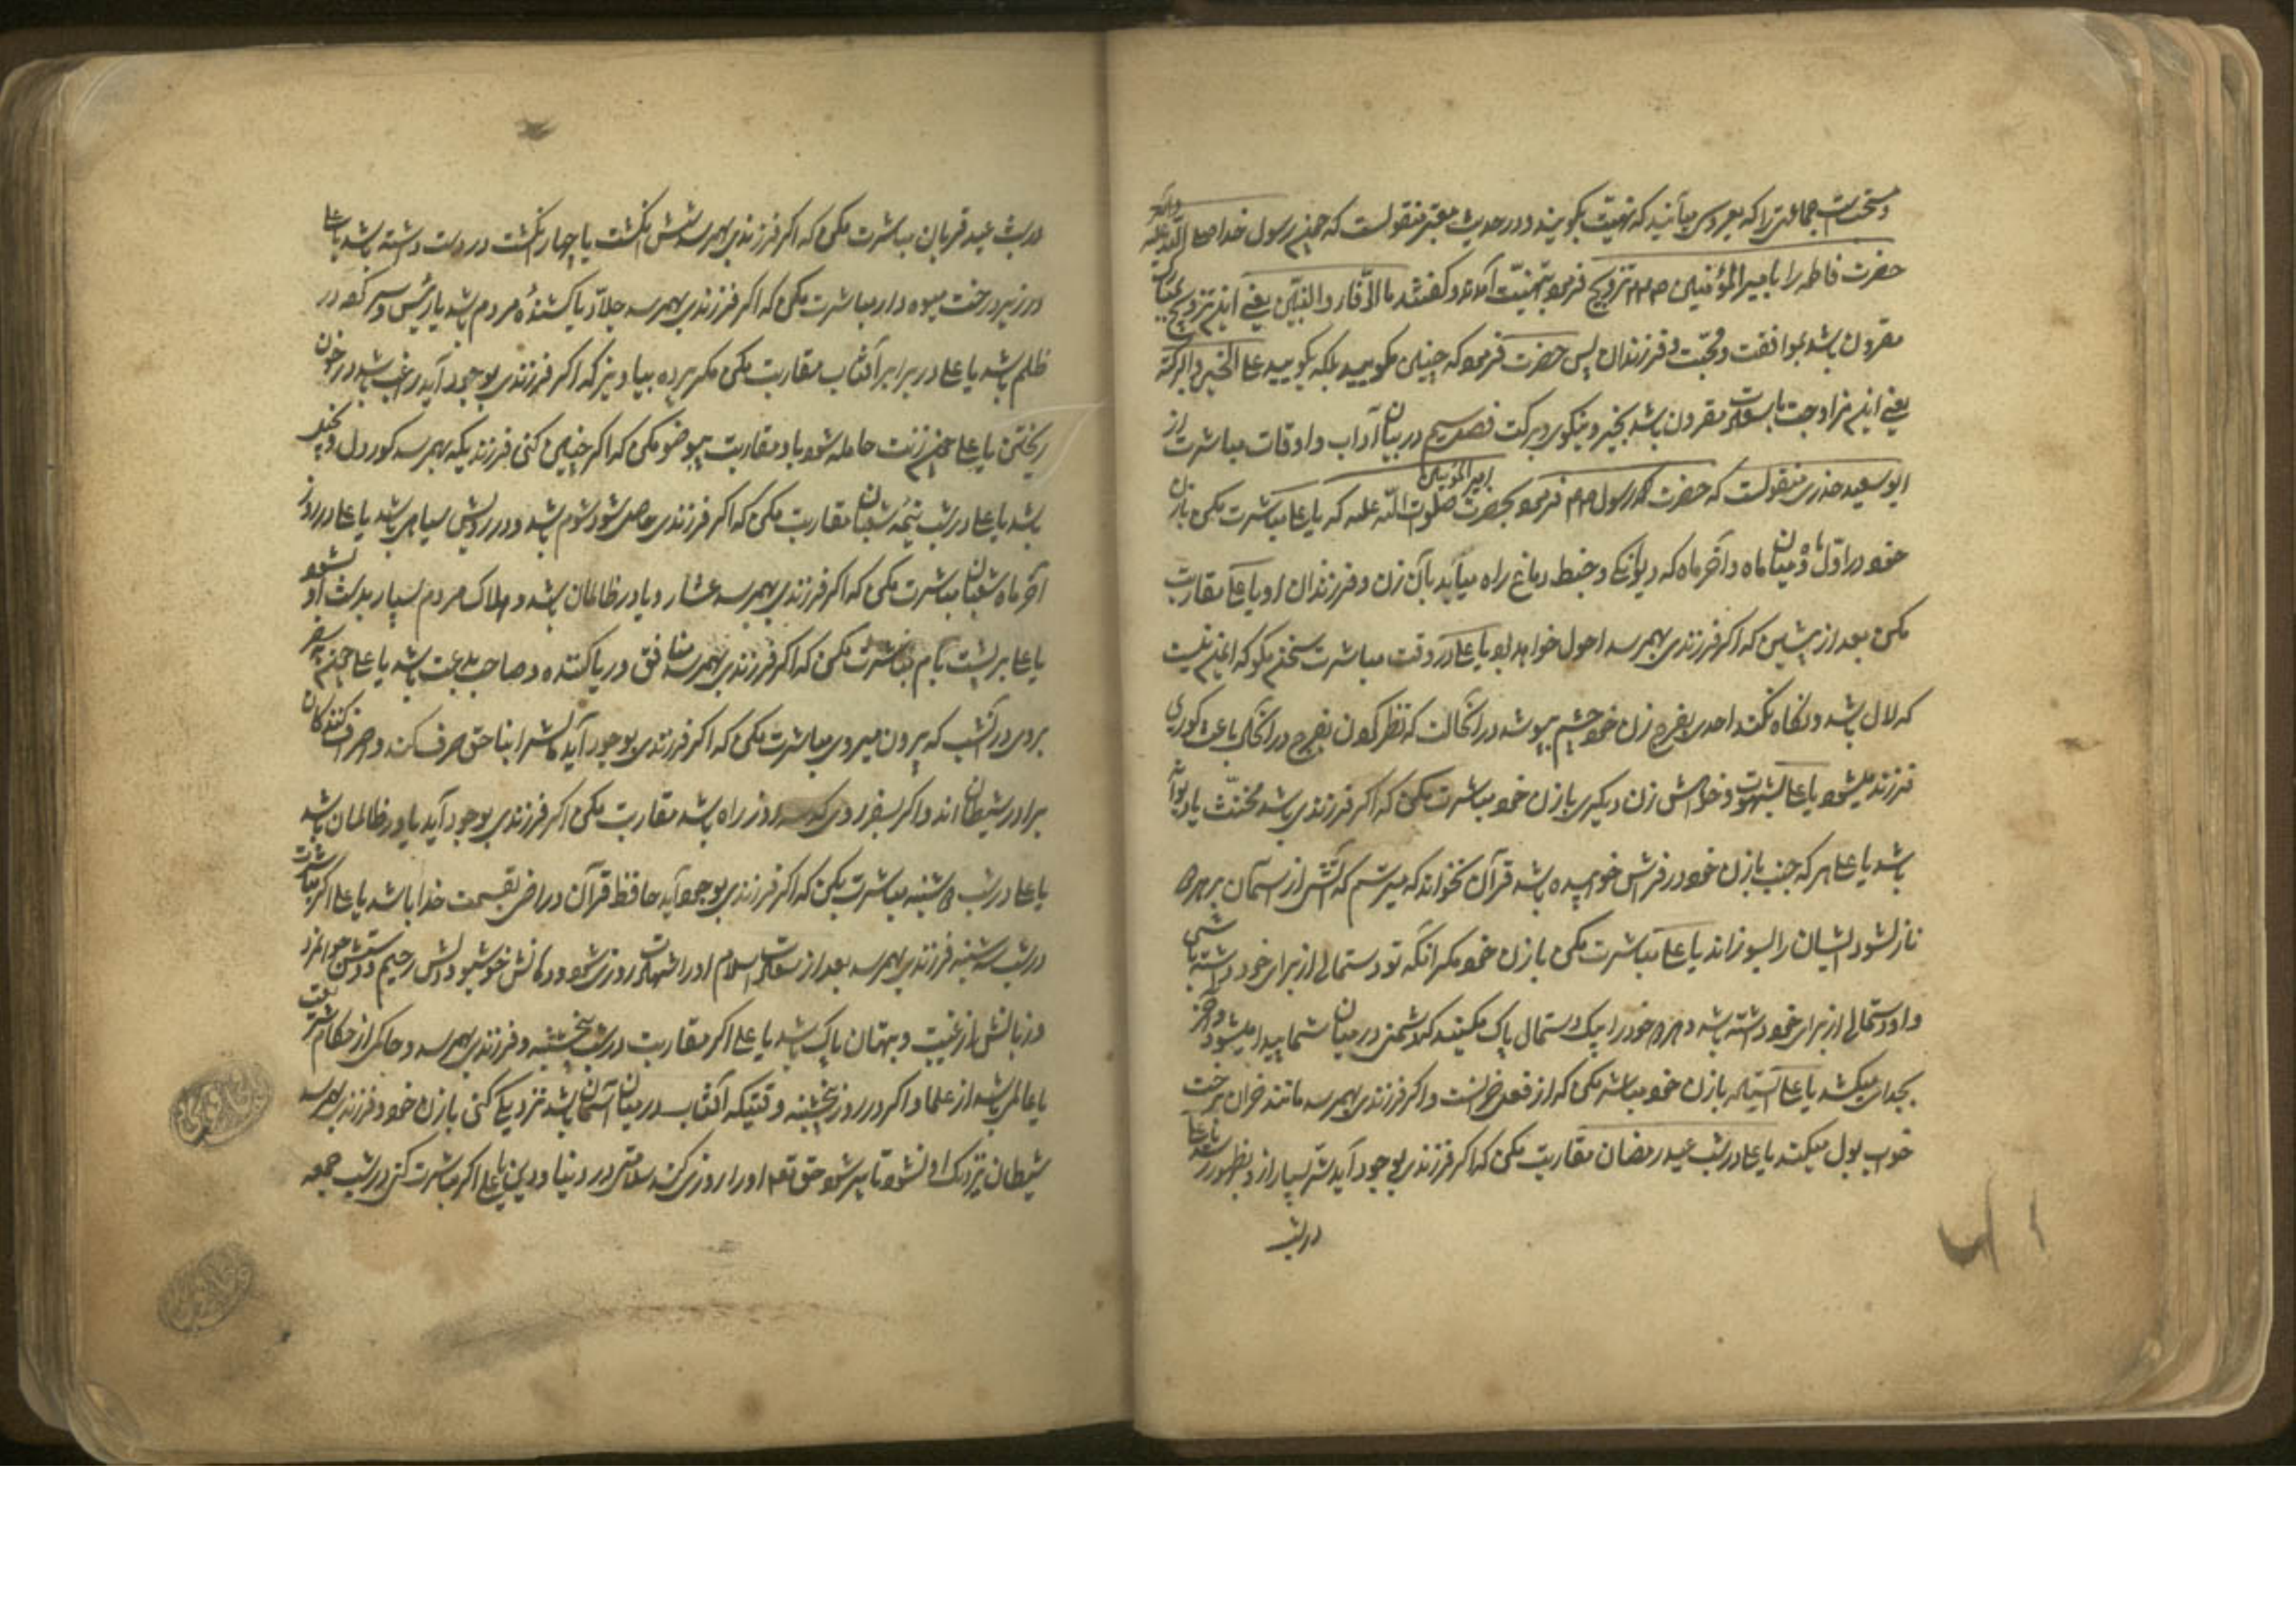 و سنت است جماعتی را که بعروسی می‌آیند که تهنیت بگویند و در حدیث معتبر منقولست که چون رسول خدا صلی الله علیه وآله
حضرت فاطمه را با امیرالمؤمنین تزویج فرمود بتهنیت آمدند و گفتند بالرفاء والبنین یعنی این تزویج
مقرون باشد بموافقت و محبت و فرزندان پس حضرت فرمود که چنین مگویید بلکه بگویید علی الخیر والبرکة
یعنی این مزاوجت مقرون باشد بخیر و نیکوی و برکت فصل در بیان آداب و اوقات مباشرت از
ابو سعید خدری منقولست که حضرت رسول فرمود بحضرت امیرالمؤمنین صلوات الله علیه که یا علی مباشرت مکن بازن
خود در اول ماه و میان ماه و آخر ماه که دیوانگی و خبط دماغ راه میابد بآن زن و فرزندان او یا علی مقاربت
مکن بعد از پیشین که اگر فرزندی بهمرسد احول خواهد بود یا علی در وقت مباشرت سخن مگو که ایمن نیست
که لال باشد و نگاه نکند احدی بفرج زن خود چشم بپوشد در انحالت که نظر کردن بفرج در انحال باعث کوری
فرزند میشود یا علی بشهوت و خواهش زن دیگری بازن خود مباشرت مکن که اگر فرزندی باشد مخنث یا دیوانه
باشد یا علی هر که جنب بازن خود در فرش خوابیده باشد قرآن نخواند که میترسم که آتش از آسمان بر هر دو
نازل شود ایشان را بسوزاند یا علی مباشرت مکن بازن خود مگر آنکه تو دستمالی از برای خود داشته باشی
و او دستمالی از برای خود داشته باشد و هر دو خود را بیک دستمال پاک مکنید که دشمنی در میان شما پیدا میشود و آخر
بجدای میکشد یا علی ایستاده بازن خود مباشرت مکن که از فعل خرانست و اگر فرزندی بهمرسد مانند خران بر رخت
خواب بول میکند یا علی در شب عید رمضان مقاربت مکن که اگر فرزندی بوجود آید شر بسیار از او بظهور رسد یا علی
در شب
در شب عید قربان مباشرت مکن که اگر فرزندی بهمرسد شش انگشت یا چهار انگشت در دست داشته باشد یا علی
در زیر درخت میوه دار مباشرت مکن که اگر فرزندی بهمرسد جلاد یا کشندهٔ مردم باشد یا رئیس و سر کرده در
ظلم باشد یا علی در برابر آفتاب مقاربت مکن مگر پرده بیاویز که اگر فرزندی بوجود آید راغب باشد در خون
ریختن یا علی چون زنت حامله شود با او مقاربت بیوضو مکن که اگر چنین کنی فرزندیکه بهمرسد کور دل و بخیل
باشد یا علی در شب نیمهٔ شعبان مقاربت مکن که اگر فرزندی حاصل شود شوم باشد و در رویش سیاهی باشد یا علی در روز
آخر ماه شعبان مباشرت مکن که اگر فرزندی بهمرسد عشار و یاور ظالمان باشد و هلاک مردم بسیار بدست او شود
یا علی بر پشت بام مباشرت مکن که اگر فرزندی بهمرسد منافق و ریا کننده و صاحب بدعت باشد یا علی چون بسفر
بروی در آنشب که بیرون میروی مباشرت مکن که اگر فرزندی بوجود آید مالش را بناحق صرف کند و اسراف کنندگان
برادر شیطان اند و اگر بسفر روی که سه روزه راه باشد مقاربت مکن اگر فرزندی بوجود آید یاور ظالمان باشد
یا علی در شب دوشنبه مباشرت بکن که اگر فرزندی بوجود آید حافظ قرآن و راضی بقسمت خدا باشد یا علی اگر مباشرت
در شب سه شنبه فرزندی بهمرسد بعد از سعادت اسلام او را شهادت روزی شود و دهانش خوشبو و دلش رحیم و دستش جوانمرد
و زبانش از غیبت و بهتان پاک باشد یا علی اگر مقاربت در شب پنجشنبه و فرزندی بهمرسد و حاکمی از حکام شریعت
یا عالمی باشد از علما و اگر در روز پنجشنبه وقتیکه آفتاب در میان آسمان باشد نزدیکی کنی بازن خود و فرزندی بهمرسد
شیطان نزدیک او نشود تا پیر شود حق تعالی او را روزی کند سلامتی در دنیا و دین یا علی اگر مباشرت کنی در شب جمعه